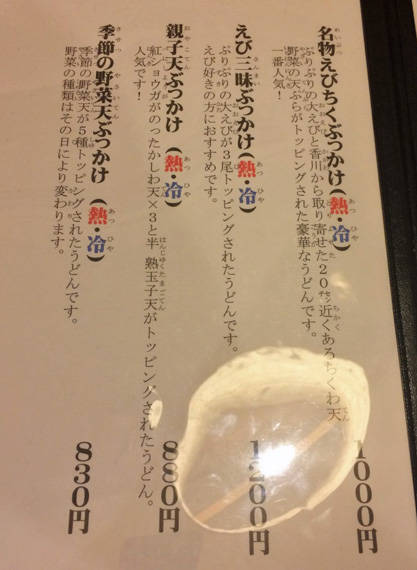 名物えびちくぶっかけ（熱・冷）
ぷりぷりの大えびと香川から取り寄せた20㌢近くあるちくわ天、
野菜の天ぷらがトッピングされた豪華なうどんです。
一番人気！
1000円
えび三昧ぶっかけ（熱・冷）
ぷりぷりの大えびが3尾トッピングされたうどんです。
えび好きの方におすすめです。
1200円
親子天ぶっかけ（熱・冷）
紅ショウガがのったかしわ天×3と半熟玉子天がトッピングされたうどん。
人気です！
880円
季節の野菜天ぶっかけ（熱・冷）
季節の野菜天が5種トッピングされたうどんです。
野菜の種類はその日により変わります。
830円